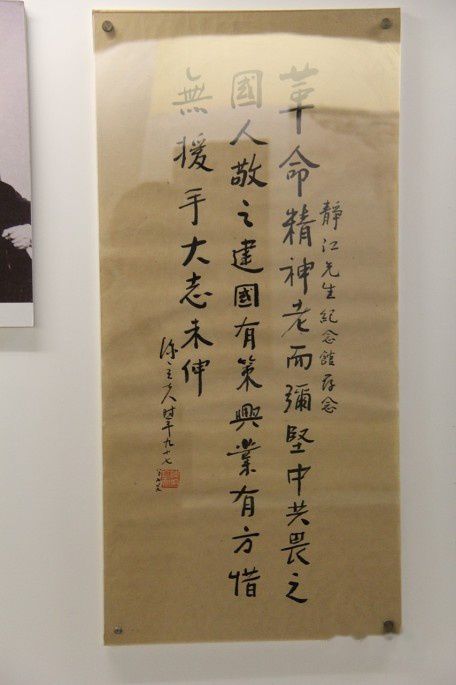 靜江先生紀念館存念
革命精神老而彌堅中共畏之
國人敬之建國有策興業有方惜
無援手大志未伸
陳立夫时年九十七